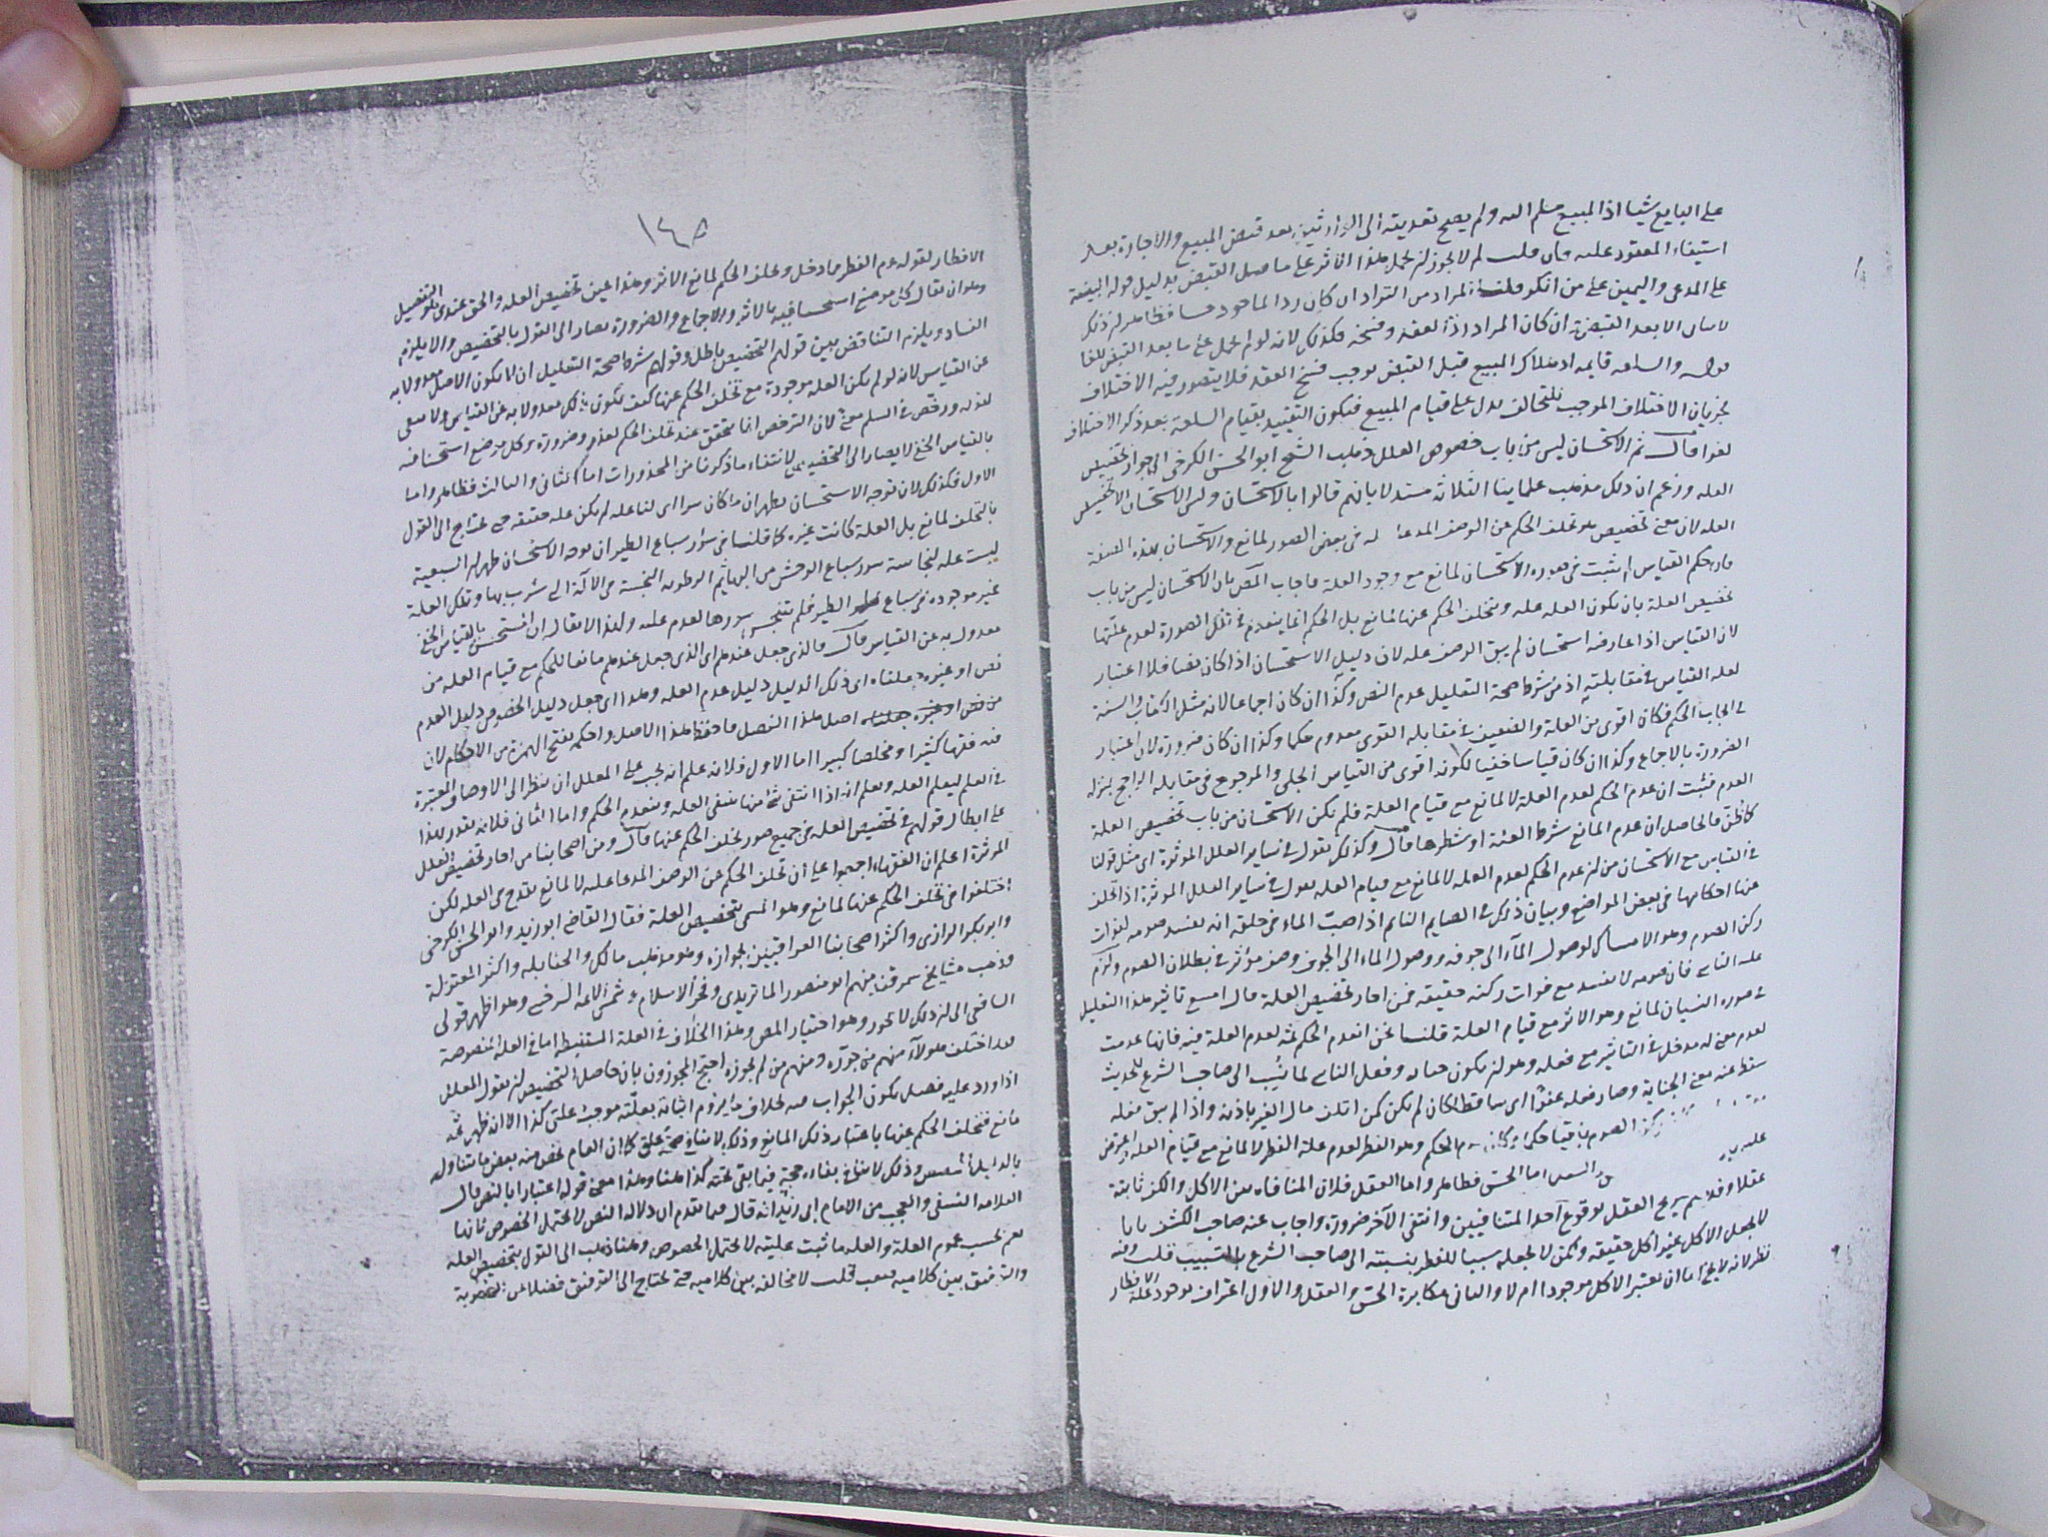 على البايع شيا اذ المبيع مسلم اليه ولم يصح تعديته الى الوارثين بعد قبض المبيع والاجارة بعد
استيفاء المعقود عليه فان قلت لم لا يجوز ان يحمل هذا الاثر على ما قبل القبض بدليل قوله البينة
على المدعى واليمين على من انكر قلت المراد من التراد ان كان رد الماخوذ حسا فظاهر لان ذلك
الا بعد القبض وان كان المراد اذا العقد وفسخه فكذلك لانه لو لم يحمل على ما بعد القبض للغا
قوله والسلعة قايمة اذ هلاك المبيع قبل القبض يوجب فسخ العقد فلا يتصور فيه الاختلاف
بجريان الاختلاف الموجب للتحالف يدل على قيام المبيع فيكون التقييد بقيام السلعة بعد ذكر الاختلاف
لغوا قال ثم الاستحسان ليس من باب خصوص العلل ذهب الشيخ ابو الحسن الكرخى الى جواز تخصيص
العلة وزعم ان ذلك مذهب علماينا الثلاثة مستدلا بانهم قالوا بالاستحسان وليس الاستحسان الا تخصيص
العلة لان معنى تخصيص تخلف الحكم عن الوصف المدعا له فى بعض الصور لمانع والاستحسان بهذه الصفة
فان حكم القياس ثبت فى صورة الاستحسان لمانع مع وجود العلة فاجاب المص بان الاستحسان ليس من باب
تخصيص العلة بان يكون العلة علة ويتخلف الحكم عنها لمانع بل الحكم انما ينعدم فى تلك الصورة لعدم علتها
لان القياس اذا عارضه استحسان لم يبق الوصف علة لان دليل الاستحسان اذا كان نصا فلا اعتبار
لعلة القياس فى مقابلته اذ من شرط صحة التعليل عدم النص وكذا ان كان اجماعا لانه مثل الكتاب والسنة
فى ايجاب الحكم فكان اقوى من العلة والضعيف فى مقابلة القوى معدوم حكما وكذا ان كان ضرورة لان اعتبار
الضرورة بالاجماع وكذا ان كان قياسا خفيا لكونه اقوى من القياس الجلى والمرجوح فى مقابلة الراجح بمنزلة
العدم فثبت ان عدم الحكم لعدم العلة لا لمانع مع قيام العلة فلم يكن الاستحسان من باب تخصيص العلة
كما ظن فالحاصل ان عدم المانع شرط العلة او شطرها قال وكذلك نقول فى ساير العلل الموثرة اى مثل قولنا
فى القياس مع الاستحسان من ان عدم الحكم لعدم العلة لا لمانع مع قيام العلة نقول فى ساير العلل الموثرة اذا تخلف
عنها احكامها فى بعض المواضع وبيان ذلك فى الصايم النايم اذا صب الماء فى حلقه انه يفسد صومه لفوات
ركن الصوم وهو الامساك لوصول الماء الى جوفه ووصول الماء الى الجوف وصف مؤثر فى بطلان الصوم ولزم
عليه الناسى فان صومه لا يفسد مع فوات ركنه حقيقة فمن اجاز تخصيص العلة قال امتنع تاثير هذا التعليل
فى صورة النسيان لمانع وهو الاثر مع قيام العلة قلنا نحن انعدم الحكم ثمة لعدم العلة فيه فانها عدمت
لعدم معنى له مدخل فى التاثير مع فعله وهو ان يكون جناية وفعل الناسى لما نسب الى صاحب الشرع للحديث
سقط عنه معنى الجناية وصار فعله عفوا اى ساقطا كان لم يكن كمن اتلف مال الغير باذنه واذا لم يبق فعله
ركن الصوم باقيا حكما الحكم وهو الفطر لعدم علة الفطر لا لمانع مع قيام العلة واعترض
عليه اما الحس فظاهر واما العقل فلان المنافاة بين الاكل والكف ثابتة
عقلا وقد لم صريح العقل بوقوع احد المتنافيين وانتفى الآخر ضرورة واجاب عنه صاحب الكشف بانا
لا نجعل الاكل غير اكل حقيقة ولكن لا نجعله سببا للفطر بنسبته الى صاحب الشرع بالتسبيب قلت وفيه
نظر لانه لا يخ اما ان يعتبر الاكل موجودا ام لا والثانى مكابرة الحس والعقل والاول اعتراف بوجود علة الافطار
١٤٥
الافطار لقوله عم الفطر مما دخل وتخلف الحكم لمانع الاثر وهذا عين تخصيص العلة والحق عندى هو التفصيل
وهو ان يقال كل موضع استحسنا فيه بالاثر والاجماع والضرورة يصار الى القول بالتخصيص والا يلزم
الفساد ويلزم التناقض بين قولهم التخصيص باطل وقولهم شرط صحة التعليل ان لا يكون الاصل معدولا به
عن القياس لانه لو لم يكن العلة موجودة مع تخلف الحكم عنها كيف يكون ذلك معدولا به عن القياس ولا معنى
لقوله ورخص فى السلم معنى لان الترخص انما يتحقق عند تخلف الحكم لعذر وضرورة وكل موضع استحسنا فيه
بالقياس الخفى لا يصار الى التخصيص لانتفاء ما ذكرنا من المحذورات اما الثانى والثالث فظاهر واما
الاول فكذلك لان بوجه الاستحسان يظهر ان ما كان لنا علة لم يكن علة حقيقة حتى يحتاج الى القول
بالتخلف لمانع بل العلة كانت غيره كما قلنا فى سؤر سباع الطير ان بوجه الاستحسان ظهر ان السبعية
ليست علة لنجاسة سور سباع الوحش من البهايم الرطوبة النجسة فى الآلة التى تشرب بها وتلك العلة
غير موجودة فى سباع الطير فلم يتنجس سورها لعدم علته ولهذا لا يقال ان المستحسن بالقياس الخفى
معدول به عن القياس قال فالذى جعل عندهم اى الذى جعل عندهم مانعا للحكم مع قيام العلة من
نص او غيره جعلناه اى ذلك الدليل دليل عدم العلة وهذا اى جعل دليل الخصوص دليل العدم
من نص او غيره جعلناه اصل هذا الفصل فاحفظ هذا الاصل واحكمه بفتح الهمزة من الاحكام لان
فيه فقها كثيرا ومخلصا كبيرا اما الاول فلانه علم انه يجب على المعلل ان ينظر الى الاوصاف المعتبرة
فى العلم ليعلم العلة ويعلم انه اذا انتفى شئ منها ينفى العلة وينعدم الحكم واما الثانى فلانه يقدر بهذا
على ابطال قولهم فى تخصيص العلة فى جميع صور تخلف الحكم عنها قال ومن اصحابنا من اجاز تخصيص العلل
الموثرة اعلم ان الفقهاء اجمعوا على ان تخلف الحكم عن الوصف المدعا علة لا لمانع يقدح فى العلة لكن
اختلفوا فى تخلف الحكم عنها لمانع وهو المسمى بتخصيص العلة فقال القاضى ابو زيد وابو الحسن الكرخى
وابو بكر الرازى واكثر اصحابنا العراقيين بجوازه وهو مذهب مالك والحنابلة واكثر المعتزلة
وذهب مشايخ سمرقند منهم ابو منصور الماتريدى وفخر الاسلام وشمس الائمة السرخسى وهو اظهر قولى
الشافعى الى ان ذلك لا يجوز وهو اختيار المص وهذا الخلاف فى العلة المستنبطة اما فى العلة المنصوصة
فقد اختلف هؤلاء منهم من جوزه ومنهم من لم يجوزه احتج المجوزون بان حاصل التخصيص ان يقول المعلل
اذا ورد عليه فصل يكون الجواب فيه بخلاف ما يروم اثباته بعلته موجب علتى كذا الا انه ظهر ثمة
مانع فتخلف الحكم عنها باعتبار ذلك المانع وذلك لا ينافى صحة علتى كما ان العام يخص منه بعض ما تناوله
بالدليل وذلك لا ينافى بقاءه حجة فيما بقى تحته كذا هنا وهذا معنى قوله اعتبارا بالنص قال
العلامة النسفى والعجب من الامام ابى زيد انه قال فيما تقدم ان دلالة النص لا يحتمل الخصوص ثانها
نعم بحسب عموم العلة والعلة ما ثبت عليته لا يحتمل الخصوص وهنا ذهب الى القول بتخصيص العلة
والتوفيق بين كلاميه صعب قلت لا مخالفة بين كلاميه حتى يحتاج الى التوفيق فضلا عن الصعوبة